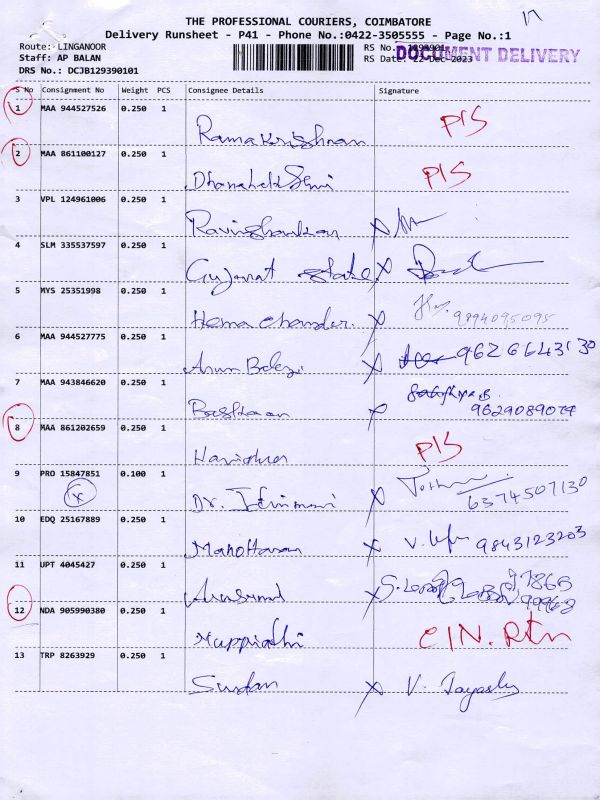 17
THE PROFESSIONAL COURIERS, COIMBATORE
Delivery Runsheet - P41 - Phone No.:0422-3505555 - Page No.:1
Route: LINGANOOR RS No.
Staff: AP BALAN RS Date: 22-Dec-2023
DOCUMENT DELIVERY
DRS No.: DCJB129390101
S No Consignment No Weight PCS Consignee Details Signature
1 MAA 944527526 0.250 1
Ramakrishnan P/S
2 MAA 861100127 0.250 1
P/S
3 VPL 124961006 0.250 1
Ravishankar X
4 SLM 335537597 0.250 1
Gujarat State X
5 MYS 25351998 0.250 1
Hema chander. X 9994095095
6 MAA 944527775 0.250 1
Arun Balaji X 9626643130
7 MAA 943846620 0.250 1
Baskaran X 9629089074
8 MAA 861202659 0.250 1
Haridra P/S
9 PRO 15847851 0.100 1
X
Dr. X 6374507130
10 EDQ 25167889 0.250 1
Manoharan X V. 9843123203
11 UPT 4045427 0.250 1
X S.
12 NDA 905990380 0.250 1
Muppidathi C/N. Rtn
13 TRP 8263929 0.250 1
Sudan X V. Jayashy